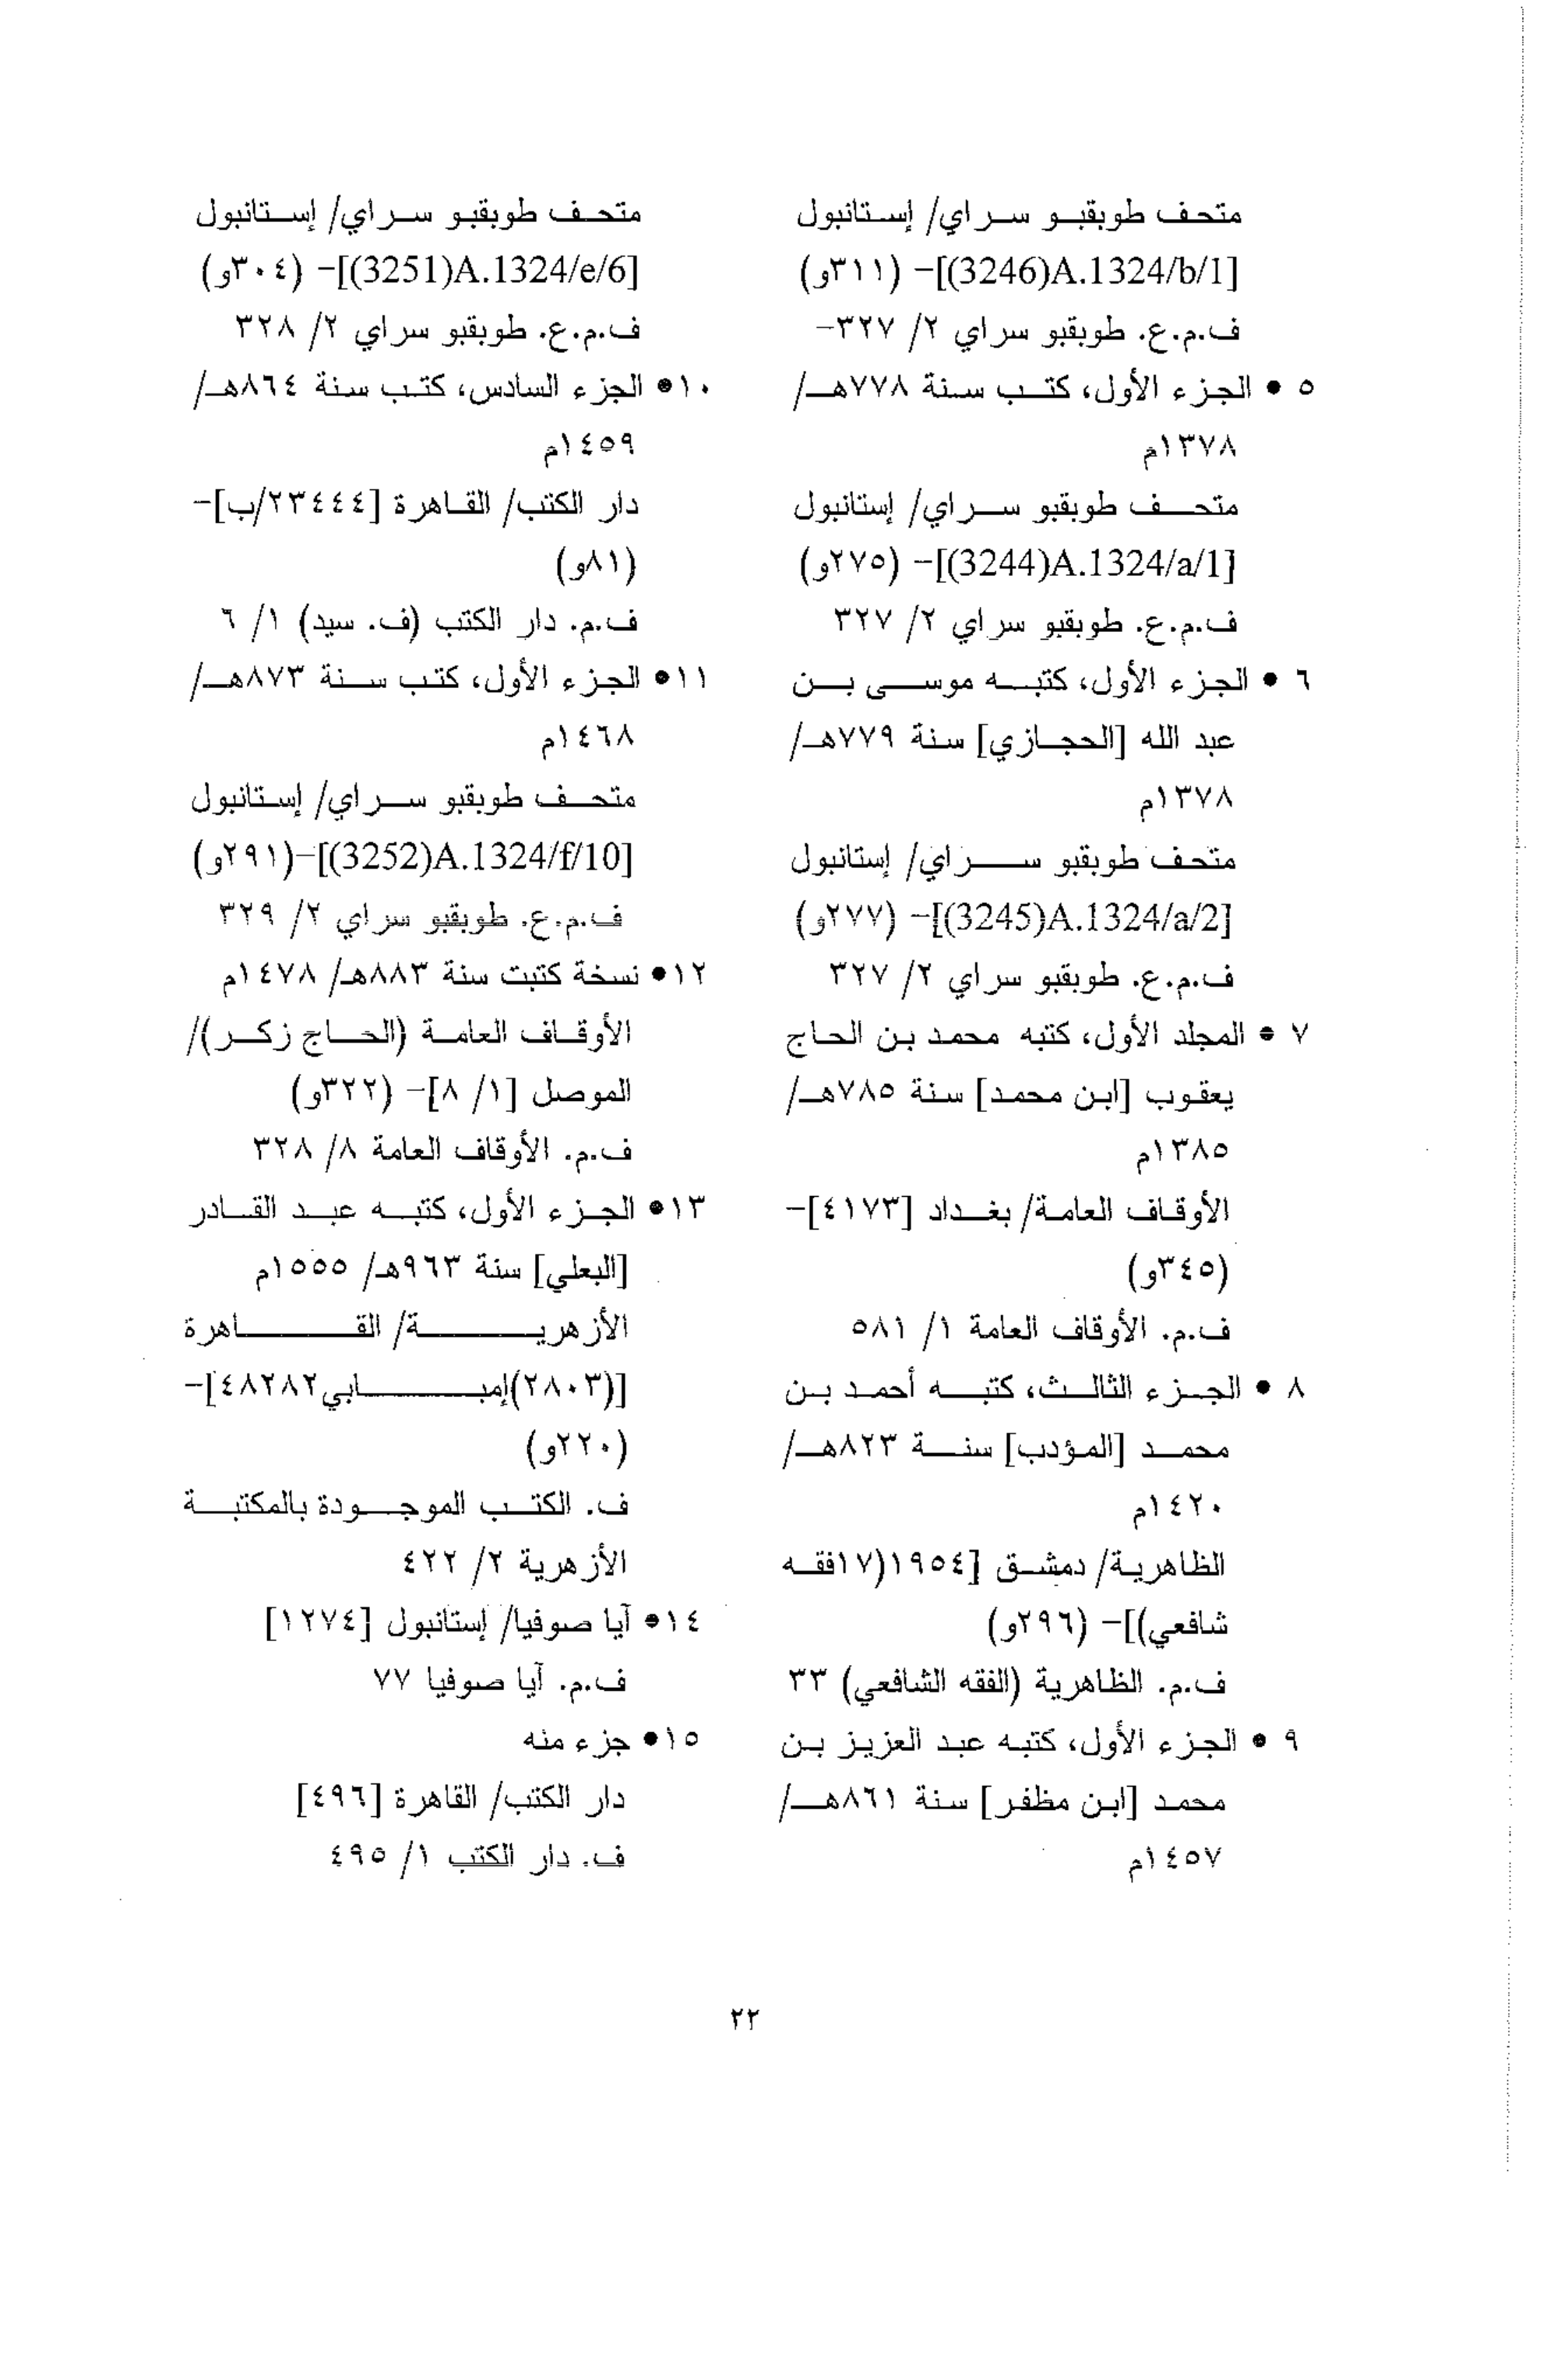 متحف طوبقبو سراي/ إستانبول
[A.1324/b/1(3246)]- (٣١١و)
ف.م.ع. طوبقبو سراي ٢/ ٣٢٧-
٥ • الجزء الأول، كتب سنة ٧٧٨هـ/
١٣٧٨م
متحف طوبقبو سراي/ إستانبول
[A.1324/a/1(3244)]- (٢٧٥و)
ف.م.ع. طوبقبو سراي ٢/ ٣٢٧
٦ • الجزء الأول، كتبه موسى بن
عبد الله [الحجازي] سنة ٧٧٩هـ/
١٣٧٨م
متحف طوبقبو سراي/ إستانبول
[A.1324/a/2(3245)]- (٢٧٧و)
ف.م.ع. طوبقبو سراي ٢/ ٣٢٧
٧ • المجلد الأول، كتبه محمد بن الحاج
يعقوب [ابن محمد] سنة ٧٨٥هـ/
١٣٨٥م
الأوقاف العامة/ بغداد [٤١٧٣]-
(٣٤٥و)
ف.م. الأوقاف العامة ١/ ٥٨١
٨ • الجزء الثالث، كتبه أحمد بن
محمد [المؤدب] سنة ٨٢٣هـ/
١٤٢٠م
الظاهرية/ دمشق [١٩٥٤(١٧فقه
شافعي)]- (٢٩٦و)
ف.م. الظاهرية (الفقه الشافعي) ٣٣
٩ • الجزء الأول، كتبه عبد العزيز بن
محمد [ابن مظفر] سنة ٨٦١هـ/
١٤٥٧م
متحف طوبقبو سراي/ إستانبول
[A.1324/e/6(3251)]- (٣٠٤و)
ف.م.ع. طوبقبو سراي ٢/ ٣٢٨
١٠• الجزء السادس، كتب سنة ٨٦٤هـ/
١٤٥٩م
دار الكتب/ القاهرة [٢٣٤٤٤/ب]-
(٨١و)
ف.م. دار الكتب (ف. سيد) ١/ ٦
١١• الجزء الأول، كتب سنة ٨٧٣هـ/
١٤٦٨م
متحف طوبقبو سراي/ إستانبول
[A.1324/f/10(3252)]-(٢٩١و)
ف.م.ع. طوبقبو سراي ٢/ ٣٢٩
١٢• نسخة كتبت سنة ٨٨٣هـ/ ١٤٧٨م
الأوقاف العامة (الحاج زكر)/
الموصل [١/ ٨]- (٣٢٢و)
ف.م. الأوقاف العامة ٨/ ٣٢٨
١٣• الجزء الأول، كتبه عبد القادر
[البعلي] سنة ٩٦٣هـ/ ١٥٥٥م
الأزهرية/ القاهرة
[(٢٨٠٣)إمبابي٤٨٢٨٢]-
(٢٢٠و)
ف. الكتب الموجودة بالمكتبة
الأزهرية ٢/ ٤٢٢
١٤• آيا صوفيا/ إستانبول [١٢٧٤]
ف.م. آيا صوفيا ٧٧
١٥• جزء منه
دار الكتب/ القاهرة [٤٩٦]
ف. دار الكتب ١/ ٤٩٥
٢٢